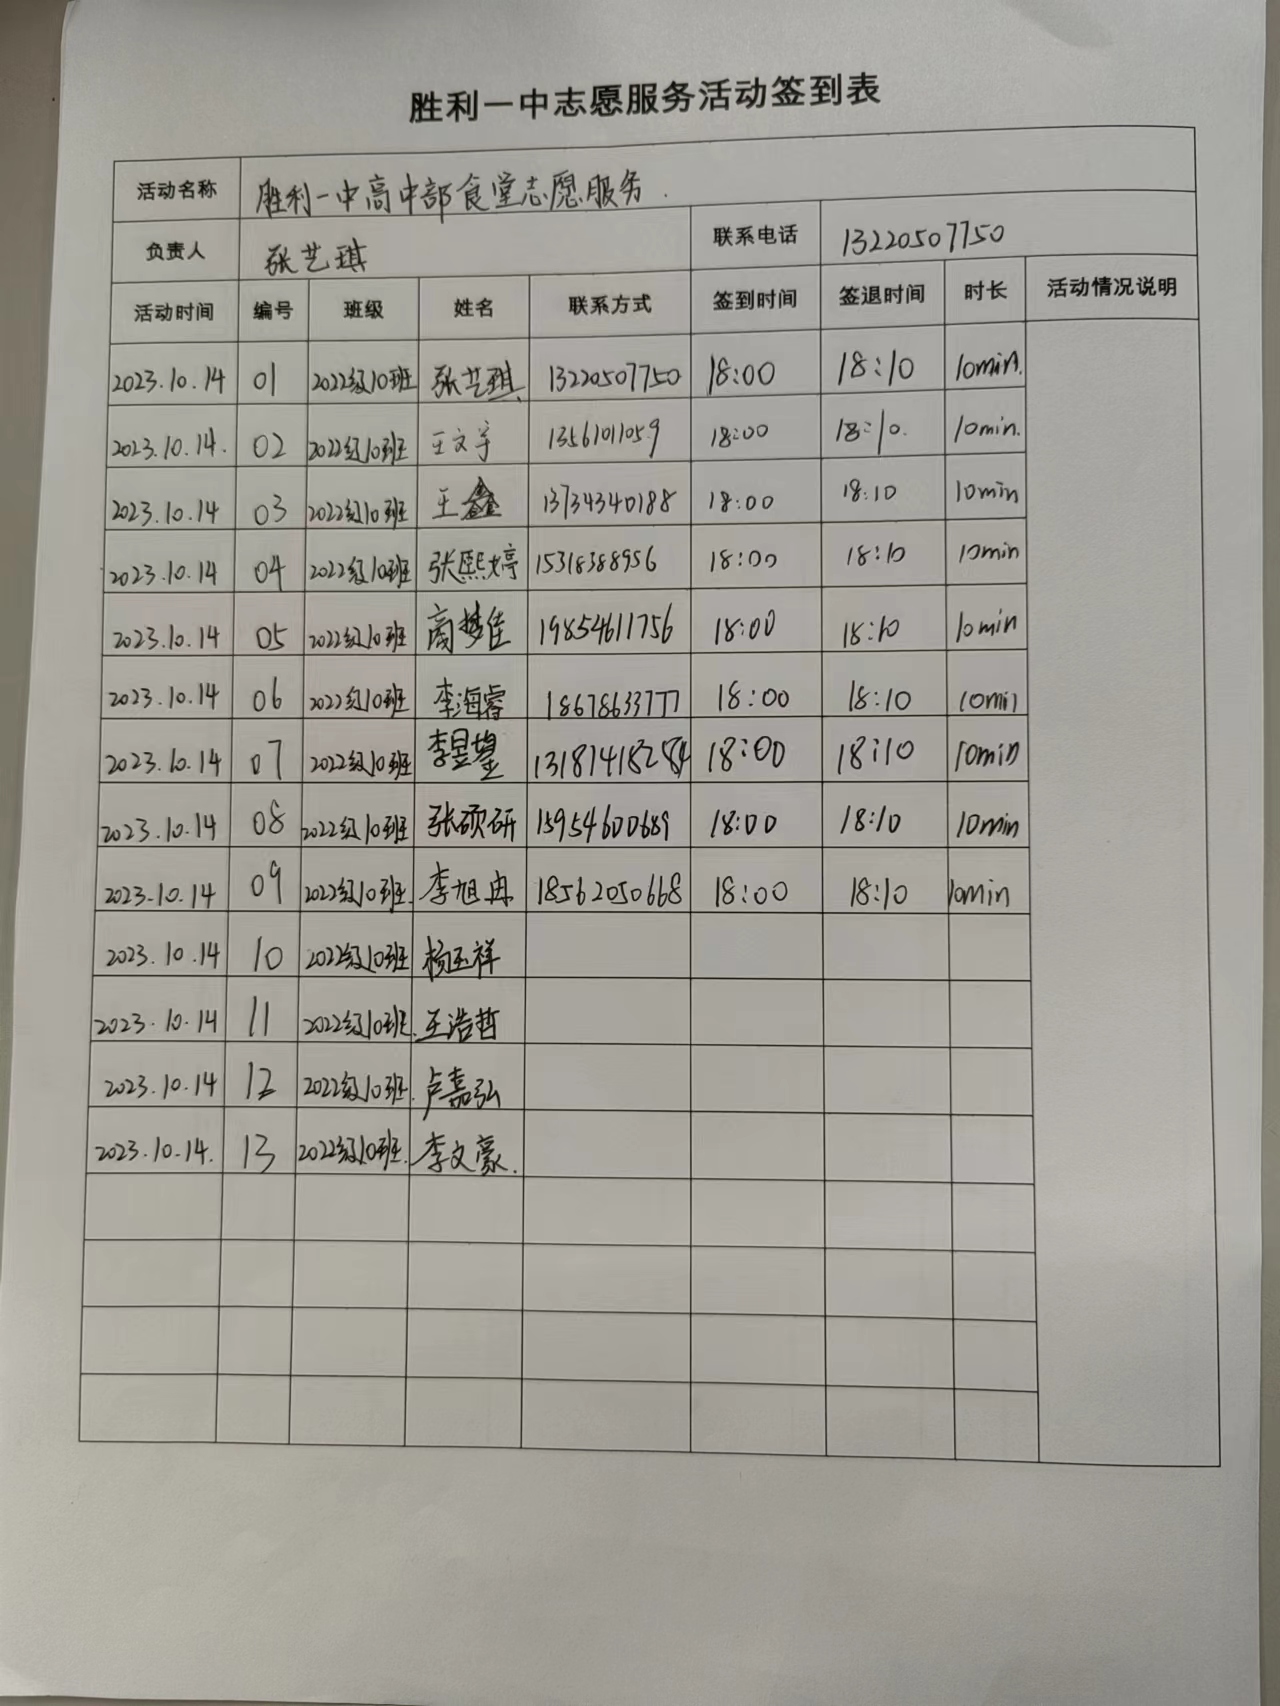 胜利一中志愿服务活动签到表
活动名称 胜利一中高中部食堂志愿服务.
负责人 张艺琪 联系电话 13220507750
活动时间 编号 班级 姓名 联系方式 签到时间 签退时间 时长 活动情况说明
2023.10.14 01 2022级10班 张艺琪 13220507750 18:00 18:10 10min.
2023.10.14. 02 2022级10班 王文宇 13561011059 18:00 18:10. 10min.
2023.10.14 03 2022级10班 王鑫 13734340188 18:00 18:10 10min
2023.10.14 04 2022级10班 张熙婷 15318388956 18:00 18:10 10min
2023.10.14 05 2022级10班 商梦佳 19854611756 18:00 18:10 10min
2023.10.14 06 2022级10班 李海睿 18678633777 18:00 18:10 10min
2023.10.14 07 2022级10班 李昱 18:00 18:10 10min
2023.10.14 08 2022级10班 张硕研 15954600689 18:00 18:10 10min
2023.10.14 09 2022级10班. 李旭冉 18562050668 18:00 18:10 10min
2023.10.14 10 2022级10班 杨玉祥
2023.10.14 11 2022级10班. 王浩哲
2023.10.14 12 2022级10班. 卢嘉弘
2023.10.14. 13 2022级10班. 李文豪.